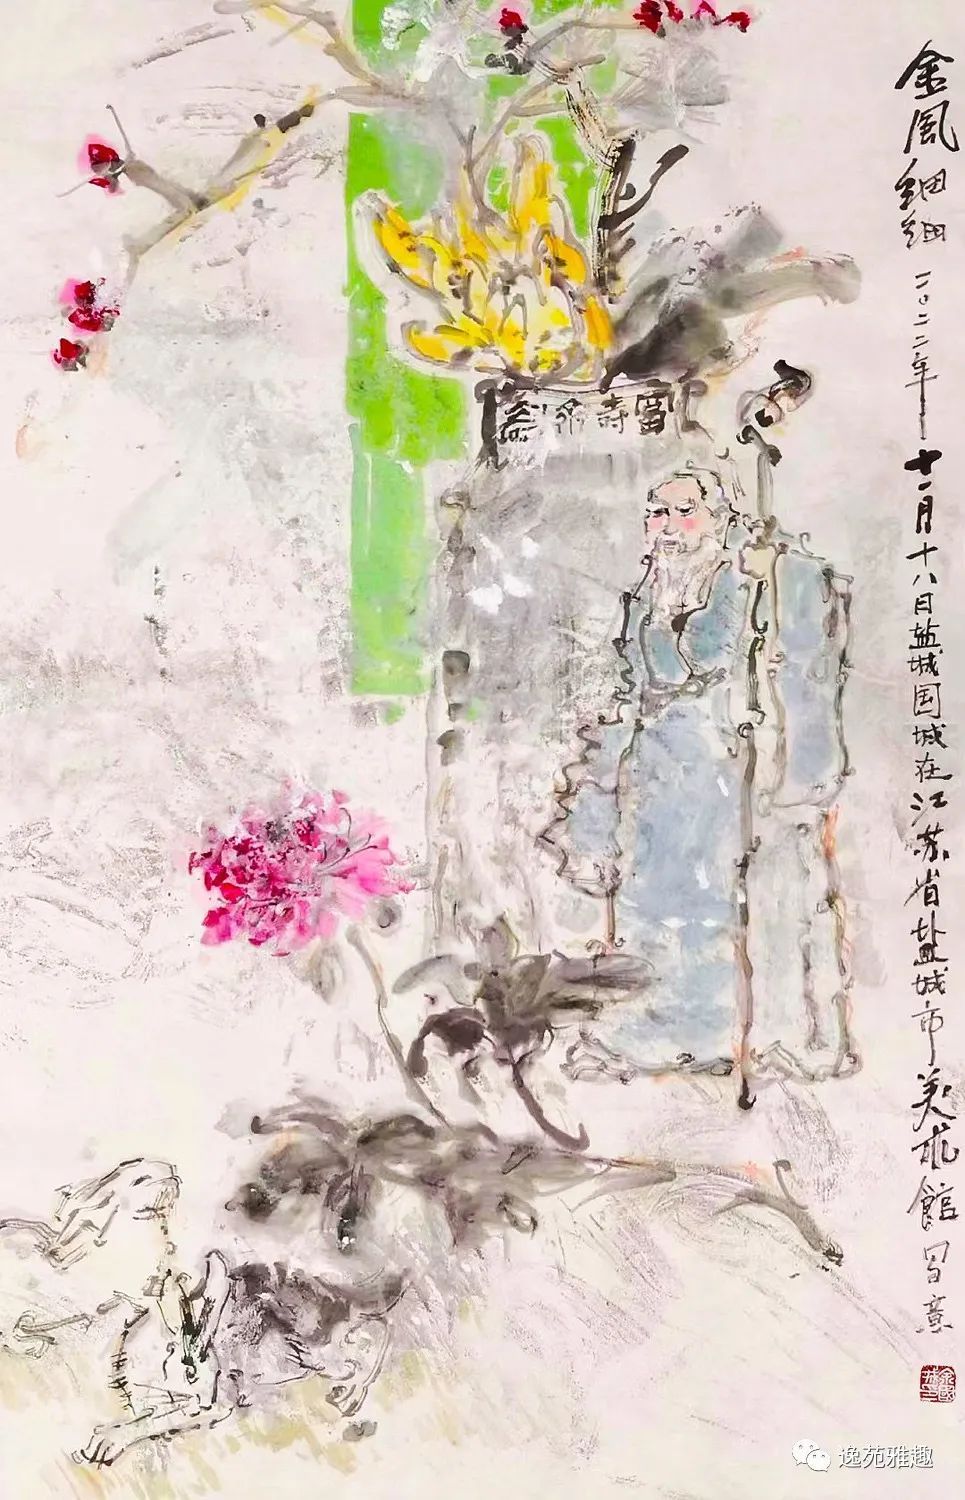 金風細細 二〇二二年十一月十八日盐城国城在江苏省盐城市美术館写意
富寿
逸苑雅趣